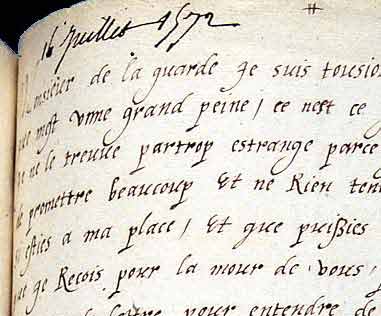 16 Juillet 1572
Monsieur de la guarde Je suis tousio
grand peine / ce nest ce
ne le treuve partrop estrange parce
promettre beaucoup Et ne Rien ten
esties a ma place / Et que puißies
ge Recois pour la mour de vous,
pour entendre de